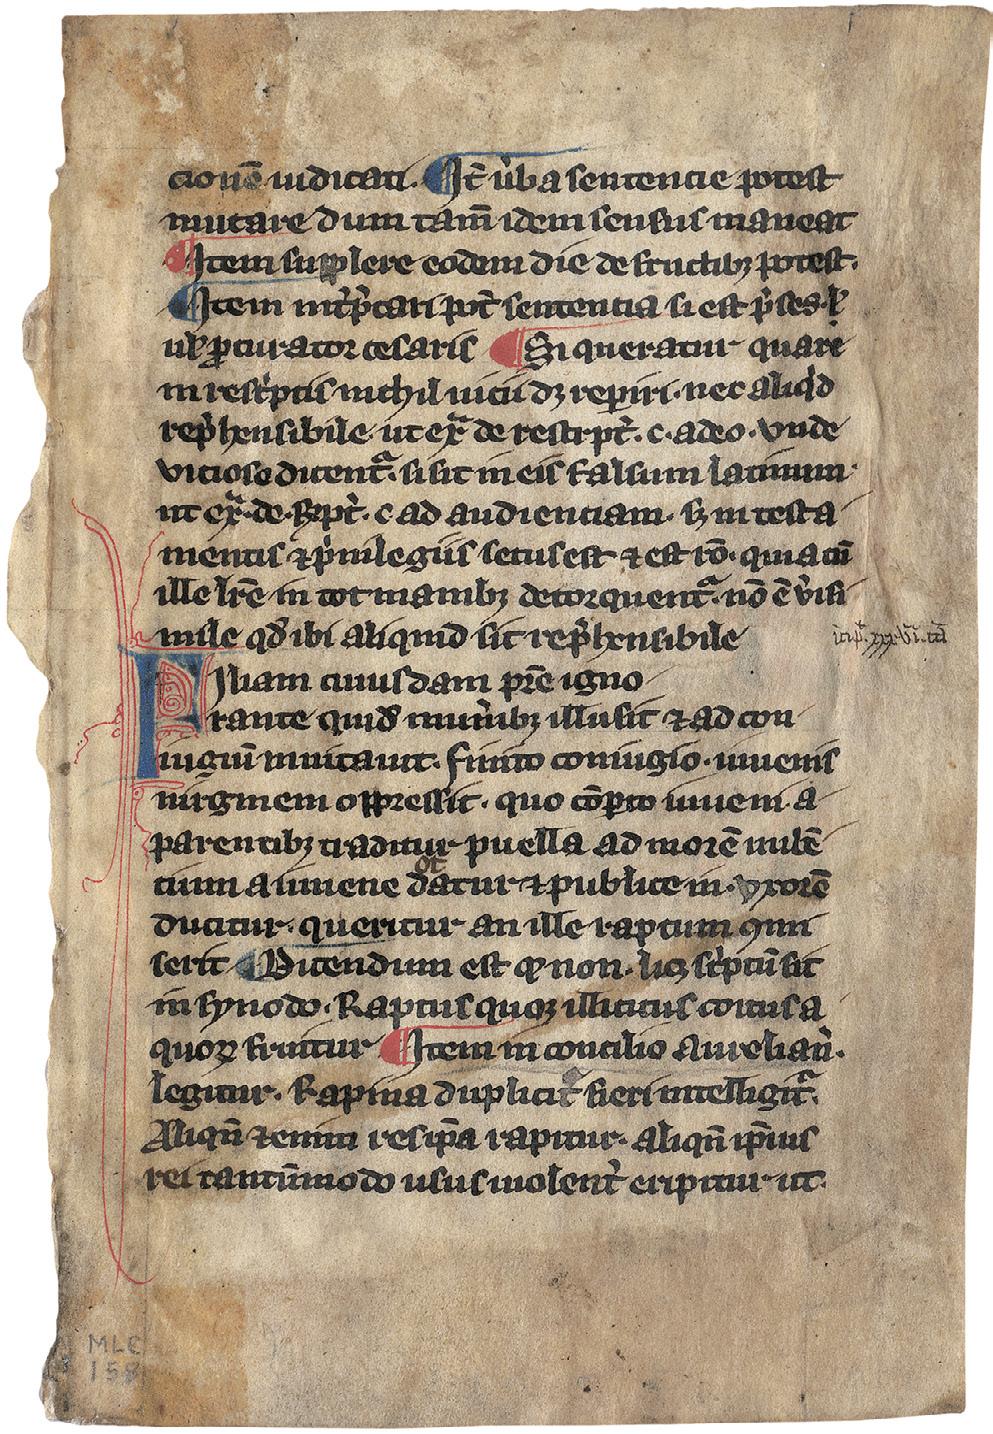 cionē iudicati. Itē ůba sentencie potest
mutare dum tam̄ idem sensus maneat
Item supplere eodem die de fructibꝫ potest.
Item int̉p̃tari pōt sentencia si est p̃ses. ł
uł ꝓcurator cesaris Si queratur quare
in resc̉ptis nichil uicii dꝫ reperiri. nec aliq̉d
rep̃hensibile. ut ex̄ᵃ de rescrpt̉. c. adeo. vnde
viciose dicent᷑. si sit in eis falsum latinum.
ut ex̄ᵃ. de. Rꝭpt̉. c ad audienciam. sꝫ in testa
mentis ⁊ p̉uilegiis secus est ⁊ est rō. quia cū
ille lr̄e in tot manibꝫ detorquent᷑. nō ē ůisi
mile qd̉ ibi aliquid sit rep̃hensibile
iīp̄. xxx.vi. cā
Filiam cuiusdam pr̄e igno
rante quid̉ mun̉ibꝫ illusit ⁊ ad con
iugiū inuitauit. finito coniugio. iuuenis
uirginem oppressit. quo cōp̱to iuueni a
parentibꝫ traditur puella ad morē nubē
cium a iuuene dotatur ⁊ publice in. vxorē
ducitur. queritur an ille raptum ꝯmi
serit Dicendum est ꝙ non. licꝫ sc̉ptū sit
in synodo. Raptus quoqꝫ illicitus coitus a
quoꝝ fruitur Item in concilio Aurelian̉.
legitur. Rapina duplicit̉ fieri intelligit᷑.
Aliqn̄ ⁊enim res ip̄a rapitur. aliqn̄ ip̄ius
rei tantūmodo usus uiolent̉ eripitur ut
MLC
158